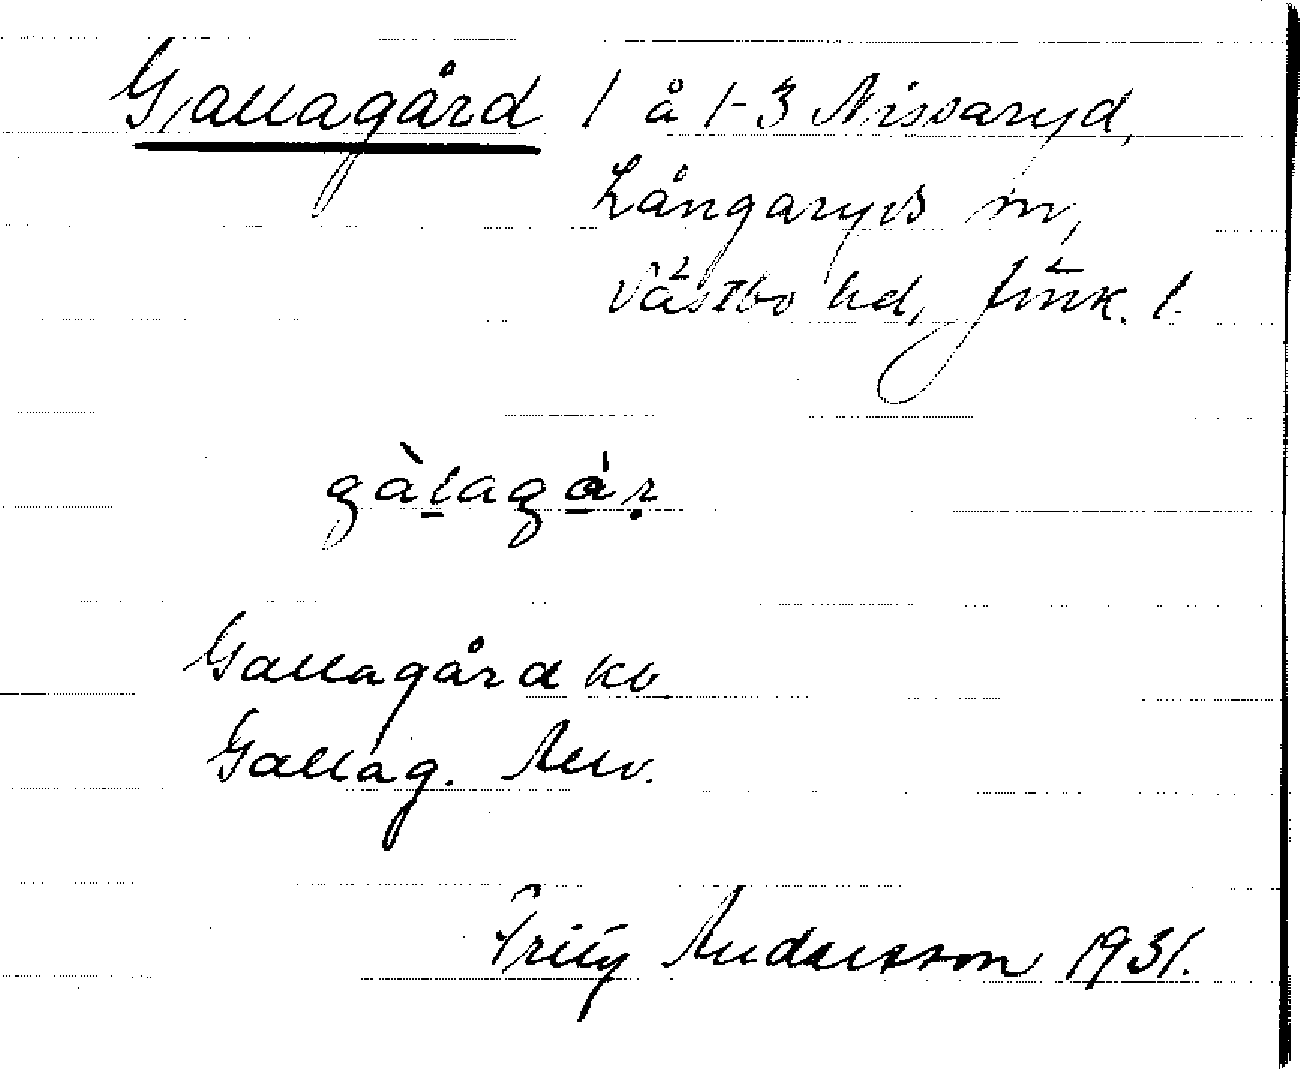 Gallagård 1 å 1-3 Nissaryd,
Långaryds sn,
Västbo hd, Jönk. l.
gàlagár
Gallagård kb
Gallag.
Fritz Andersson 1931.